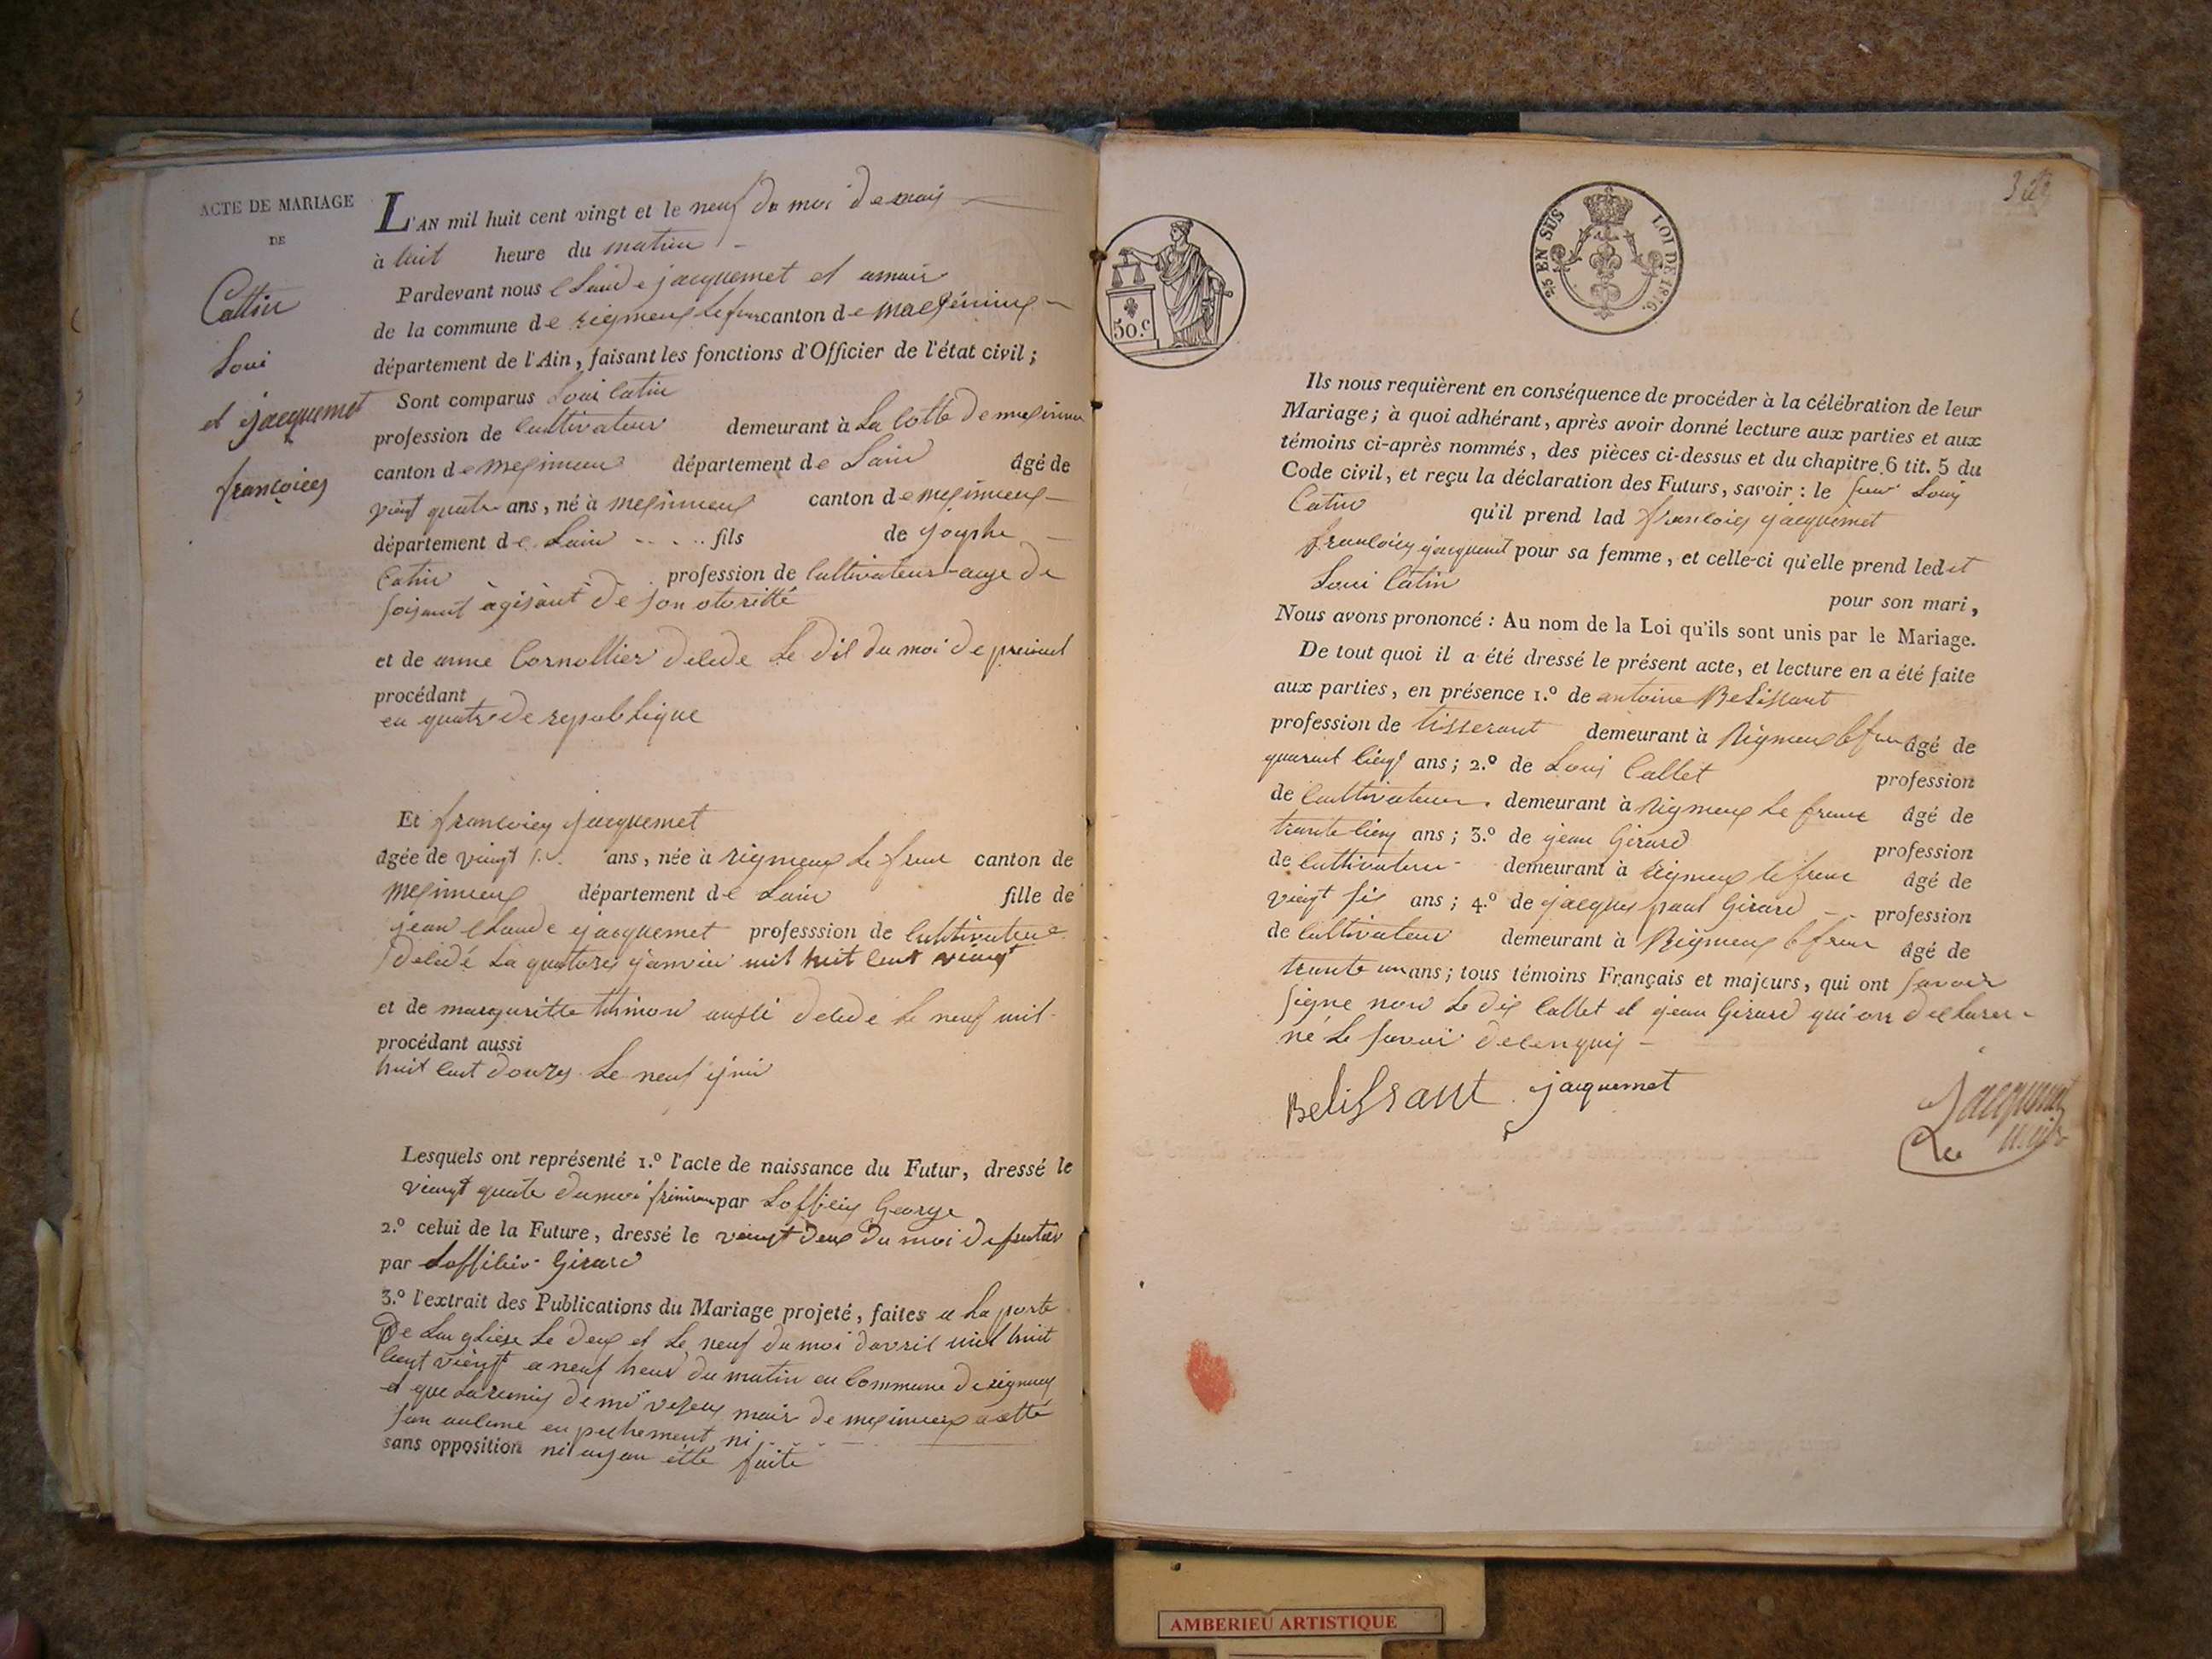 ACTE DE MARIAGE
DE
Cattin
Loui
et jacquemet
françoices
L'AN mil huit cent vingt et le neuf du moi de may
à huit heure du matin
Pardevant nous Claude jacquemet et
de la commune de rigneux le franc canton de
département de l'Ain, faisant les fonctions d'Officier de l'état civil;
Sont comparus Loui Catin
profession de Cultivateur demeurant à La Cotte de
canton de meximieu département de Lain âgé de
vient quatre ans, né à meximieux canton de meximieux
département de Lain fils de Josephe
Catin profession de Cultivateur age de
soisant agisant de son otoritté
et de anne Cornollier delede Le dil du moi de
procédant
en quatre de republique
Et francoice jacquemet
âgée de vingt ans, née à rigneux Le franc canton de
meximieux département de Lain fille de
jean Claude jacquemet professsion de Cultivateur
deledé La quatorze janvier mil huit cent vient
et de margueritte thimon aussi deledé le neuf mil
procédant aussi
huit cent douzes Le neuf juin
Lesquels ont représenté 1.º l'acte de naissance du Futur, dressé le
vienyt quatre du moi par Loffiein George
2.º celui de la Future, dressé le veingt deux du moi de
par Loffilier Girard
3.º l'extrait des Publications du Mariage projeté, faites a La porte
De Leu glise Le deux et Le neuf du moi davril mil huit
cent vient a neuf heur du matin en Commune de rigneux
et que La remis de mr mair de meximieux a etté
san aulune en pechement ni
sans opposition ni etté faite
50.c
2/5 EN SUS LOI DE 1816.
Ils nous requièrent en conséquence de procéder à la célébration de leur
Mariage; à quoi adhérant, après avoir donné lecture aux parties et aux
témoins ci-après nommés, des pièces ci-dessus et du chapitre 6 tit. 5 du
Code civil, et reçu la déclaration des Futurs, savoir: le Louis
Catin qu'il prend lad francoice jacquemet
francoice jacquemet pour sa femme, et celle-ci qu'elle prend ledit
Loui Catin pour son mari,
Nous avons prononcé: Au nom de la Loi qu'ils sont unis par le Mariage.
De tout quoi il a été dressé le présent acte, et lecture en a été faite
aux parties, en présence 1.º de antoine Belissant
profession de tisserant demeurant à Rigneux le franc âgé de
quarant ans; 2.º de Loui Callet profession
de Cultivateur demeurant à rigneux Le franc âgé de
trante ans; 3.º de jean Girard profession
de Cultivateur demeurant à rigneux le franc âgé de
vingt six ans; 4.º de jacques paul Girard profession
de Cultivateur demeurant à Rigneux le franc âgé de
trante un ans; tous témoins Français et majeurs, qui ont savoir
signe non Le dis Callet et jean Girard qui on declarer
né Le savoir
Belissant jacquemet
Jacquemet
AMBERIEU ARTISTIQUE